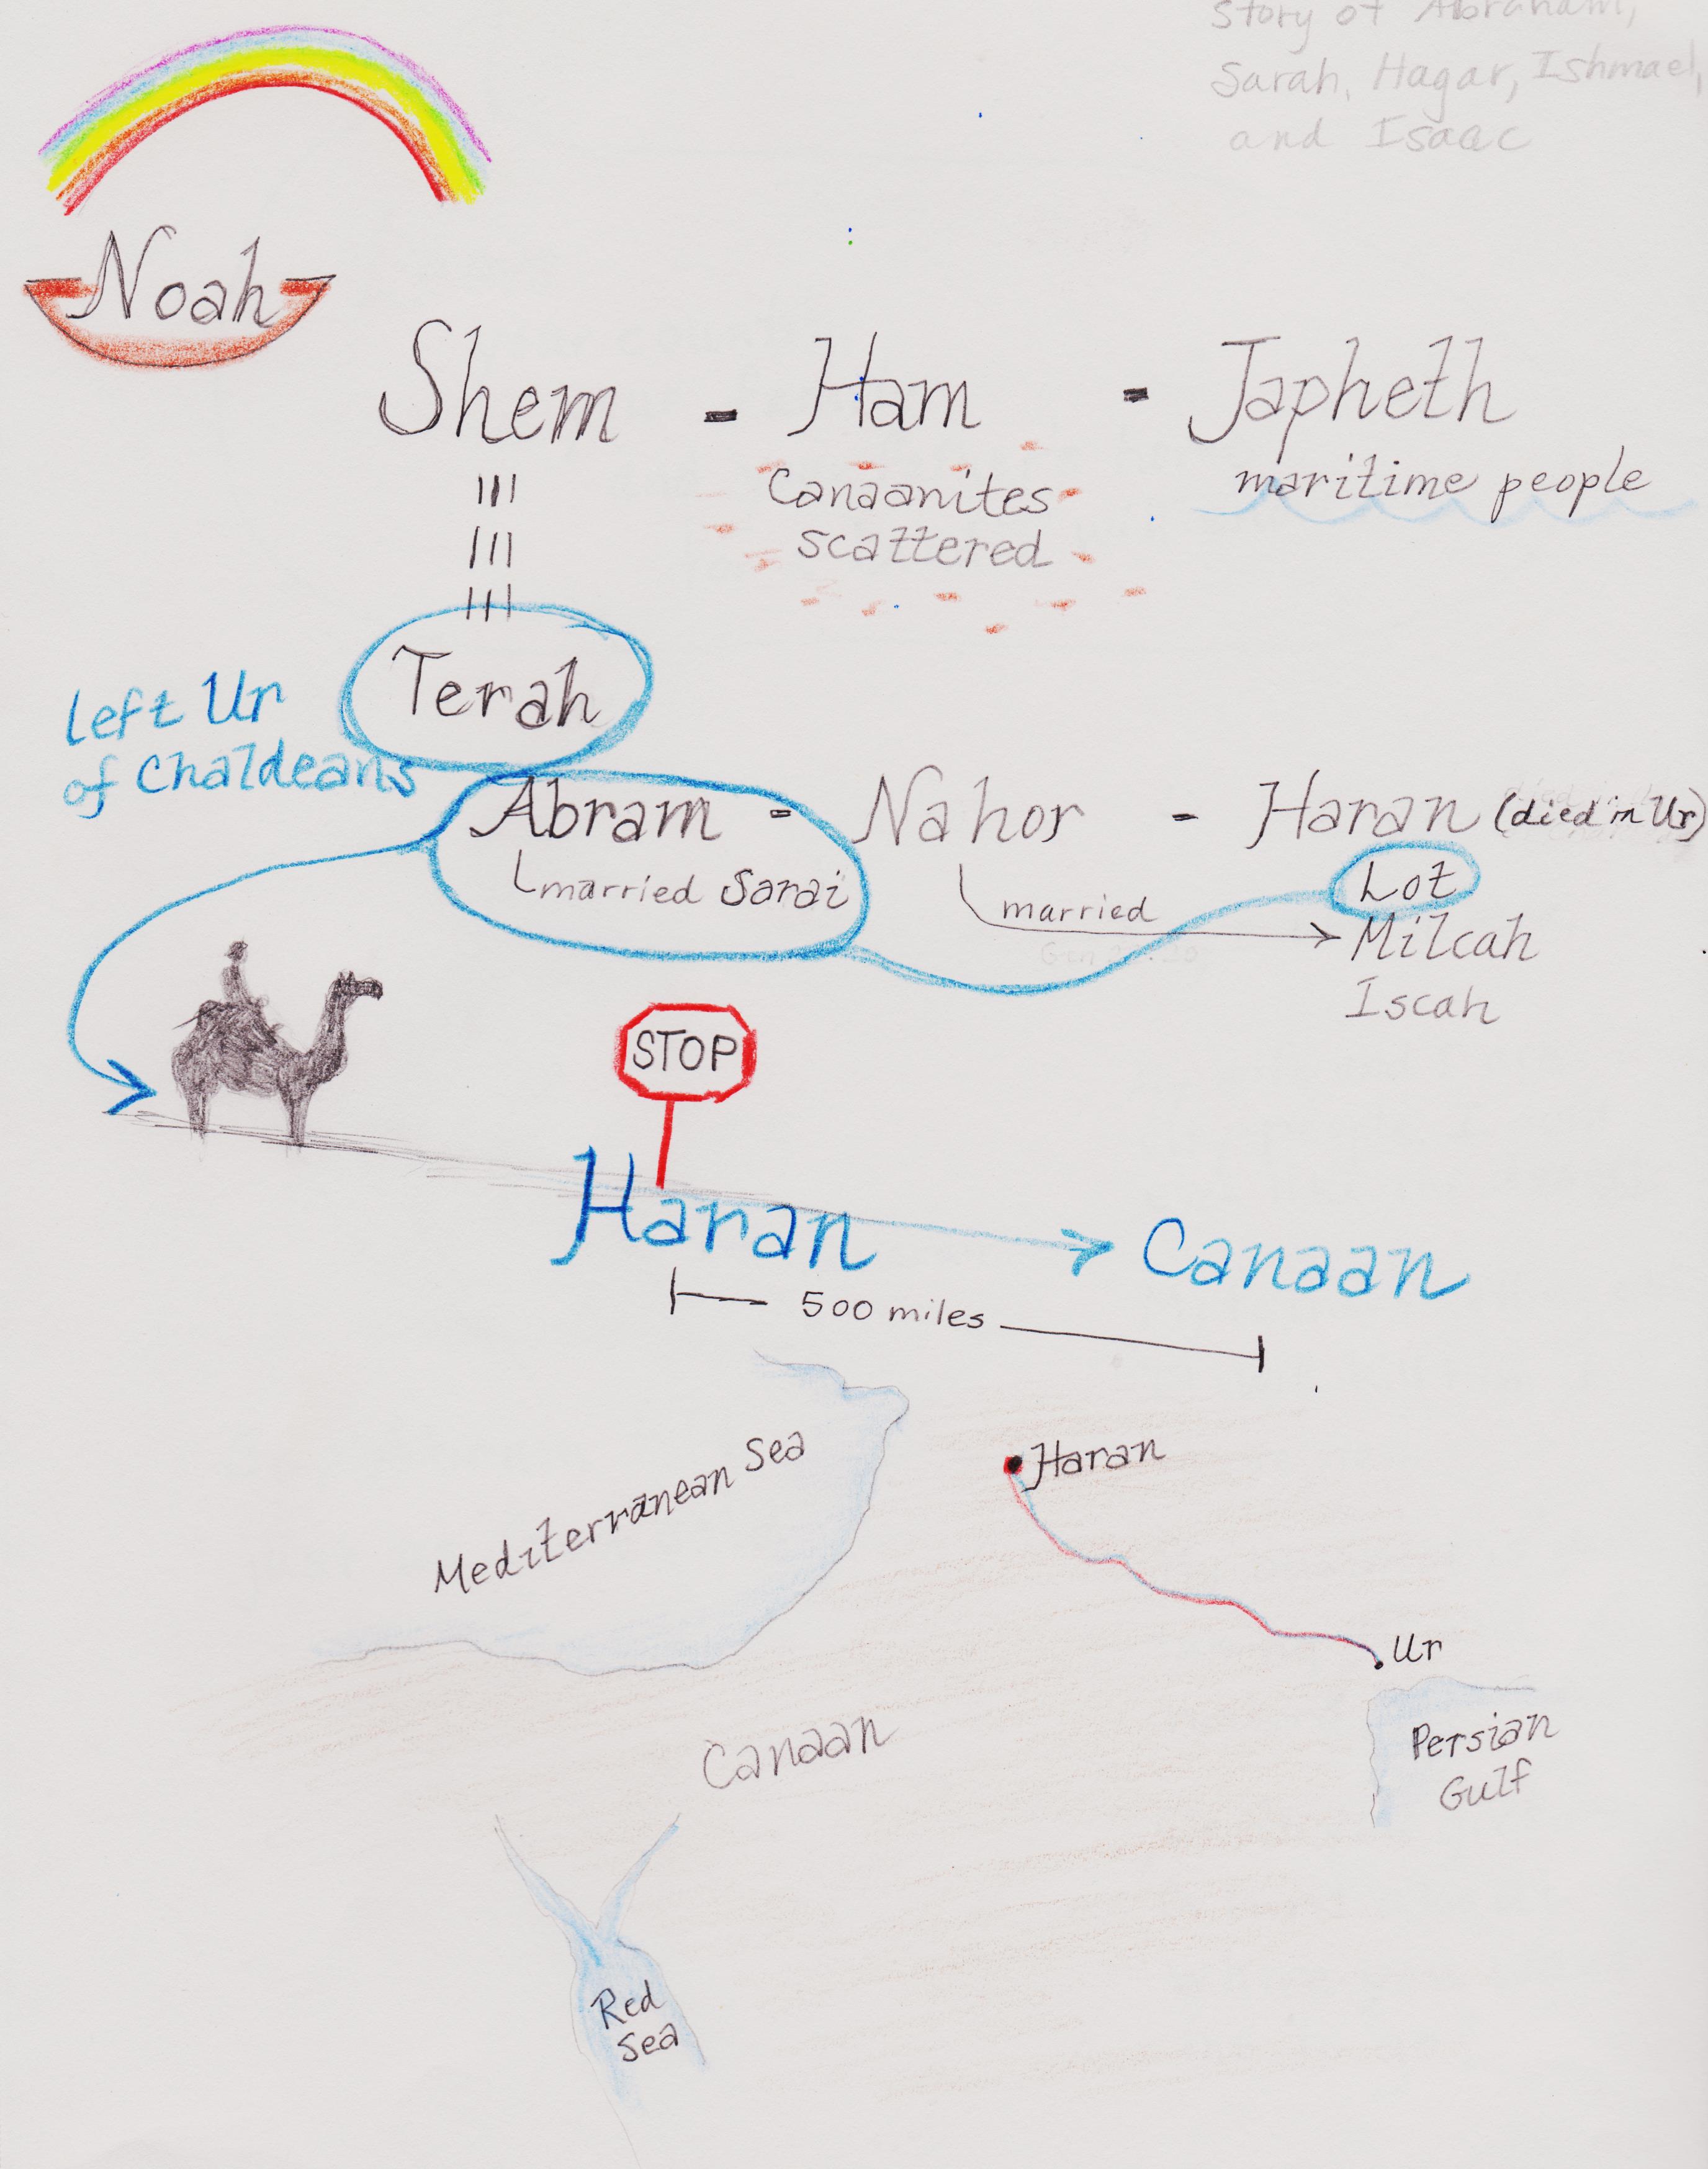 Story of Abraham,
Sarah, Hagar, Ishmael,
and Isaac
Noah
Shem - Ham - Japheth
Canaanites
scattered
maritime people
Terah
left Ur
of Chaldeans
Abram - Nahor - Haran (died in Ur)
married Sarai
married
Lot
Milcah
Iscah
STOP
Haran
Canaan
500 miles
Mediterranean Sea
Haran
Ur
Persian
Gulf
Canaan
Red
Sea